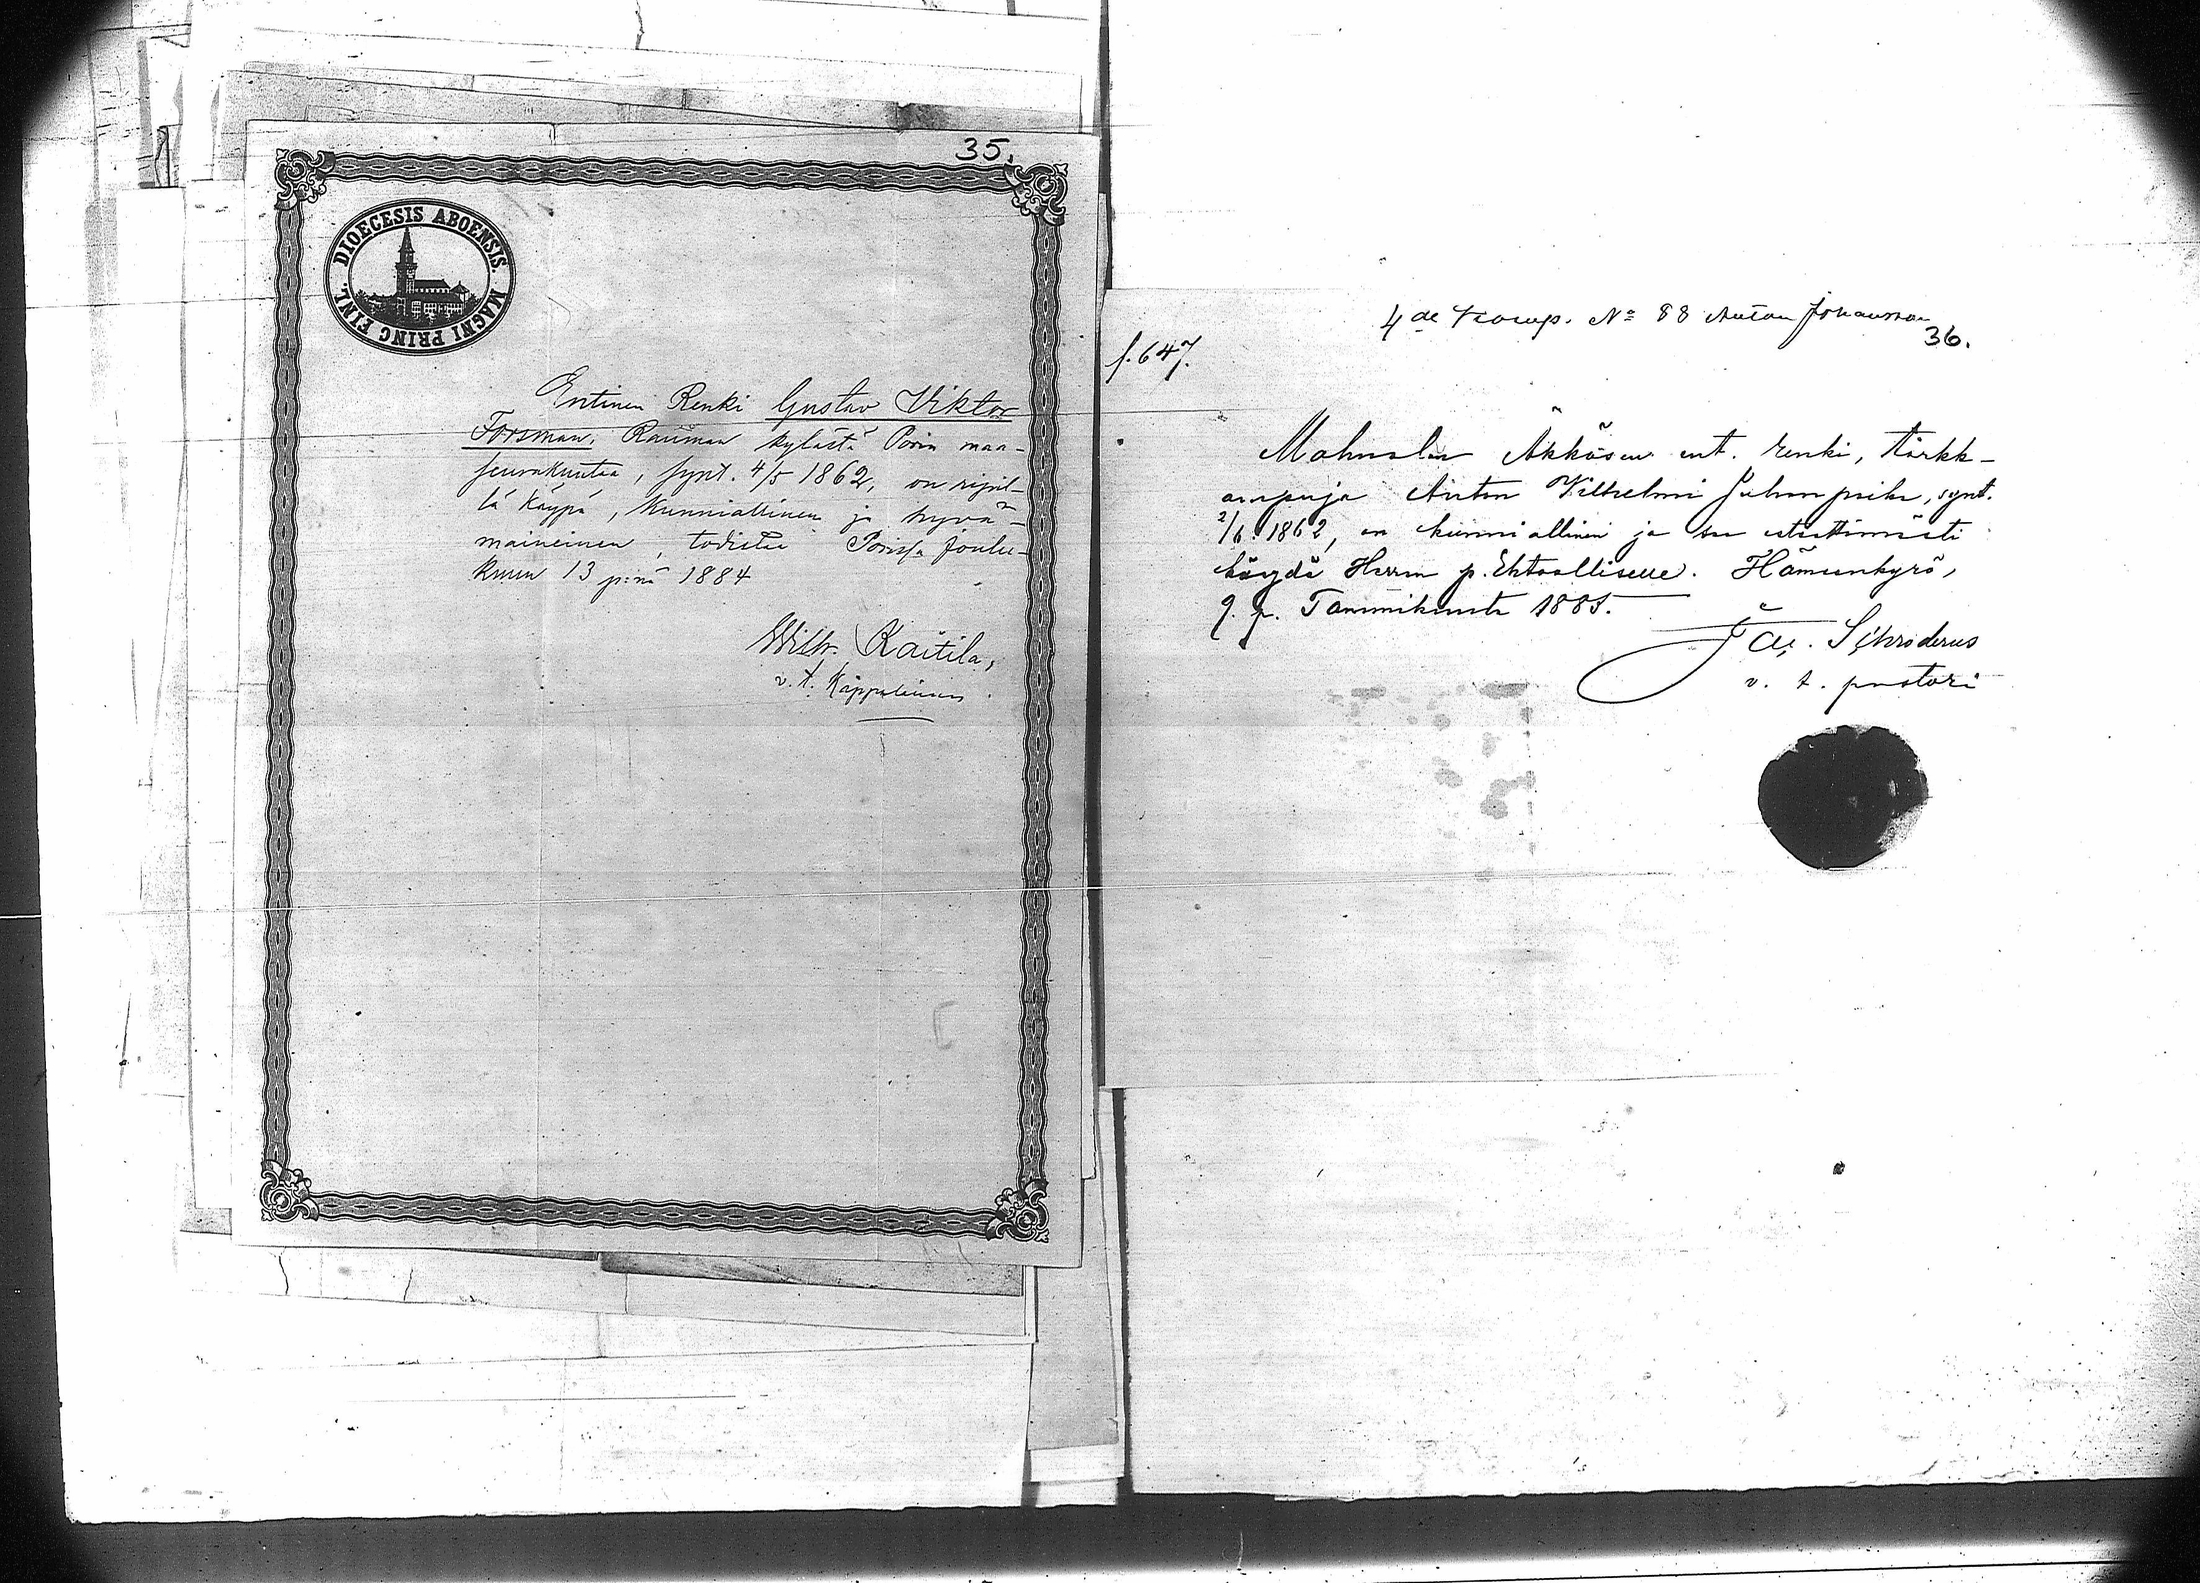 35.
DIOECESIS ABOENSIS. MAGNI PRINC FINL.
Entinen Renki Gustav Viktor
Forsman, Rauman kylästä Porin maa-
seurakuntaa, synt. 4/5 1862, on ripil-
lä käypä, kunniallinen ja hyvä-
maineinen, todistaa Porissa Joulu-
kuun 13 p:nä 1884
Wilh. Kaitila,
v. t. Kappalainen
4de Komp. No 88 Anton Johansson
36.
f. 647.
Mahnalan Äkkösen ent. renki, tarkk-
ampuja Anton Vilhelmi Juhanpoika, synt.
2/6 1862, on kunniallinen ja saa esteettömästi
käydä Herran p. Ehtoolliselle. Hämeenkyrö,
9. p. Tammikuuta 1885.
Schroderus
v. t. pastori